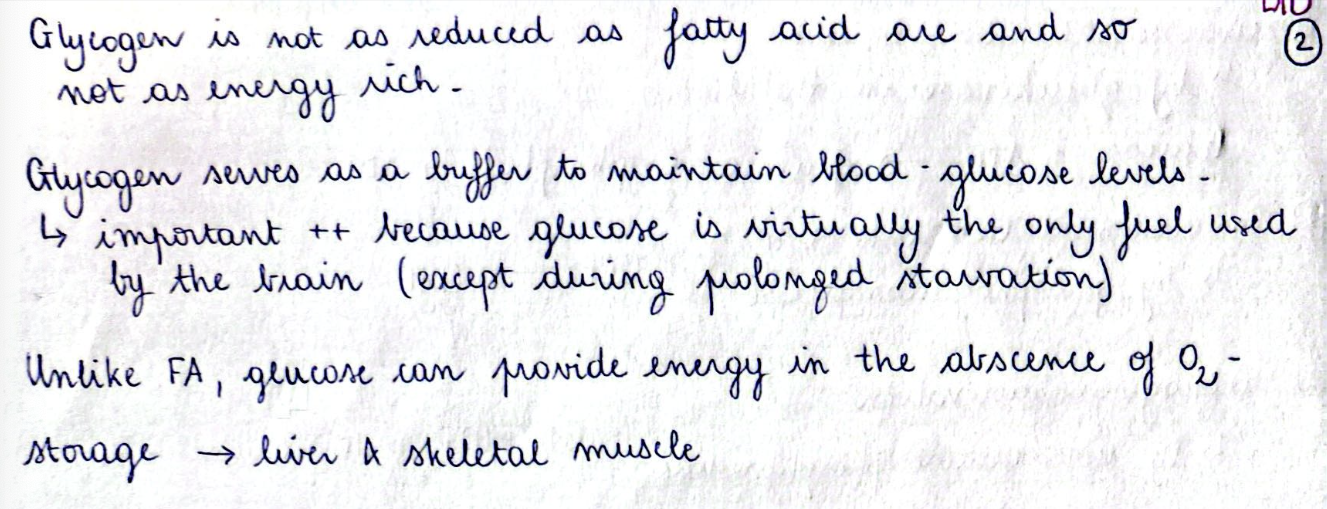 Glycogen is not as reduced as fatty acid are and so
②
not as energy rich.
Glycogen serves as a buffer to maintain blood-glucose levels.
↳ important ++ because glucose is virtually the only fuel used
by the brain (except during prolonged starvation)
Unlike FA, glucose can provide energy in the abscence of O₂.
storage → liver & skeletal muscle